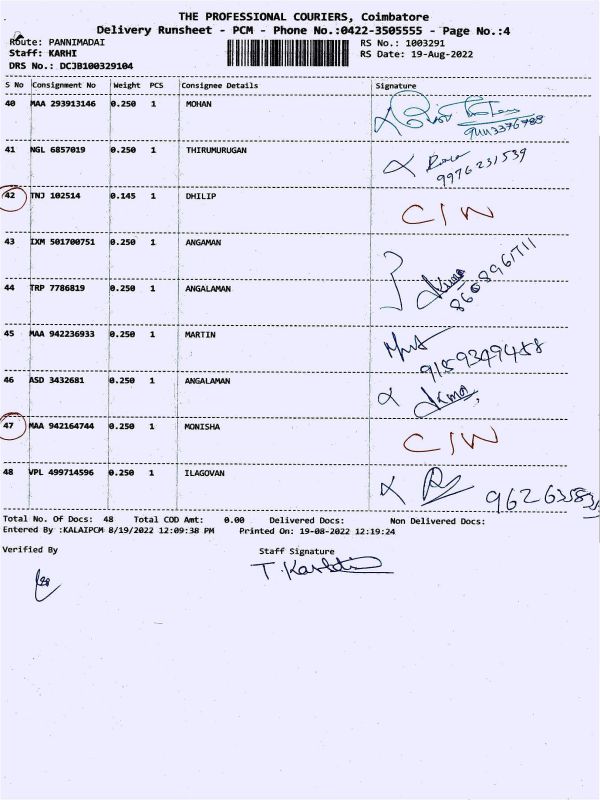 THE PROFESSIONAL COURIERS, Coimbatore
Delivery Runsheet - PCM - Phone No.:0422-3505555 - Page No.:4
Route: PANNIMADAI
Staff: KARHI
DRS No.: DCJB100329104
RS No.: 1003291
RS Date: 19-Aug-2022
S No Consignment No Weight PCS Consignee Details Signature
40 MAA 293913146 0.250 1 MOHAN
41 NGL 6857019 0.250 1 THIRUMURUGAN
9976231539
42 TNJ 102514 0.145 1 DHILIP C/N
43 IXM 501700751 0.250 1 ANGAMAN
44 TRP 7786819 0.250 1 ANGALAMAN
45 MAA 942236933 0.250 1 MARTIN
9159349458
46 ASD 3432681 0.250 1 ANGALAMAN
47 MAA 942164744 0.250 1 MONISHA C/N
48 VPL 499714596 0.250 1 ILAGOVAN
Total No. Of Docs: 48 Total COD Amt: 0.00 Delivered Docs: Non Delivered Docs:
Entered By :KALAIPCM 8/19/2022 12:09:38 PM Printed On: 19-08-2022 12:19:24
Verified By Staff Signature